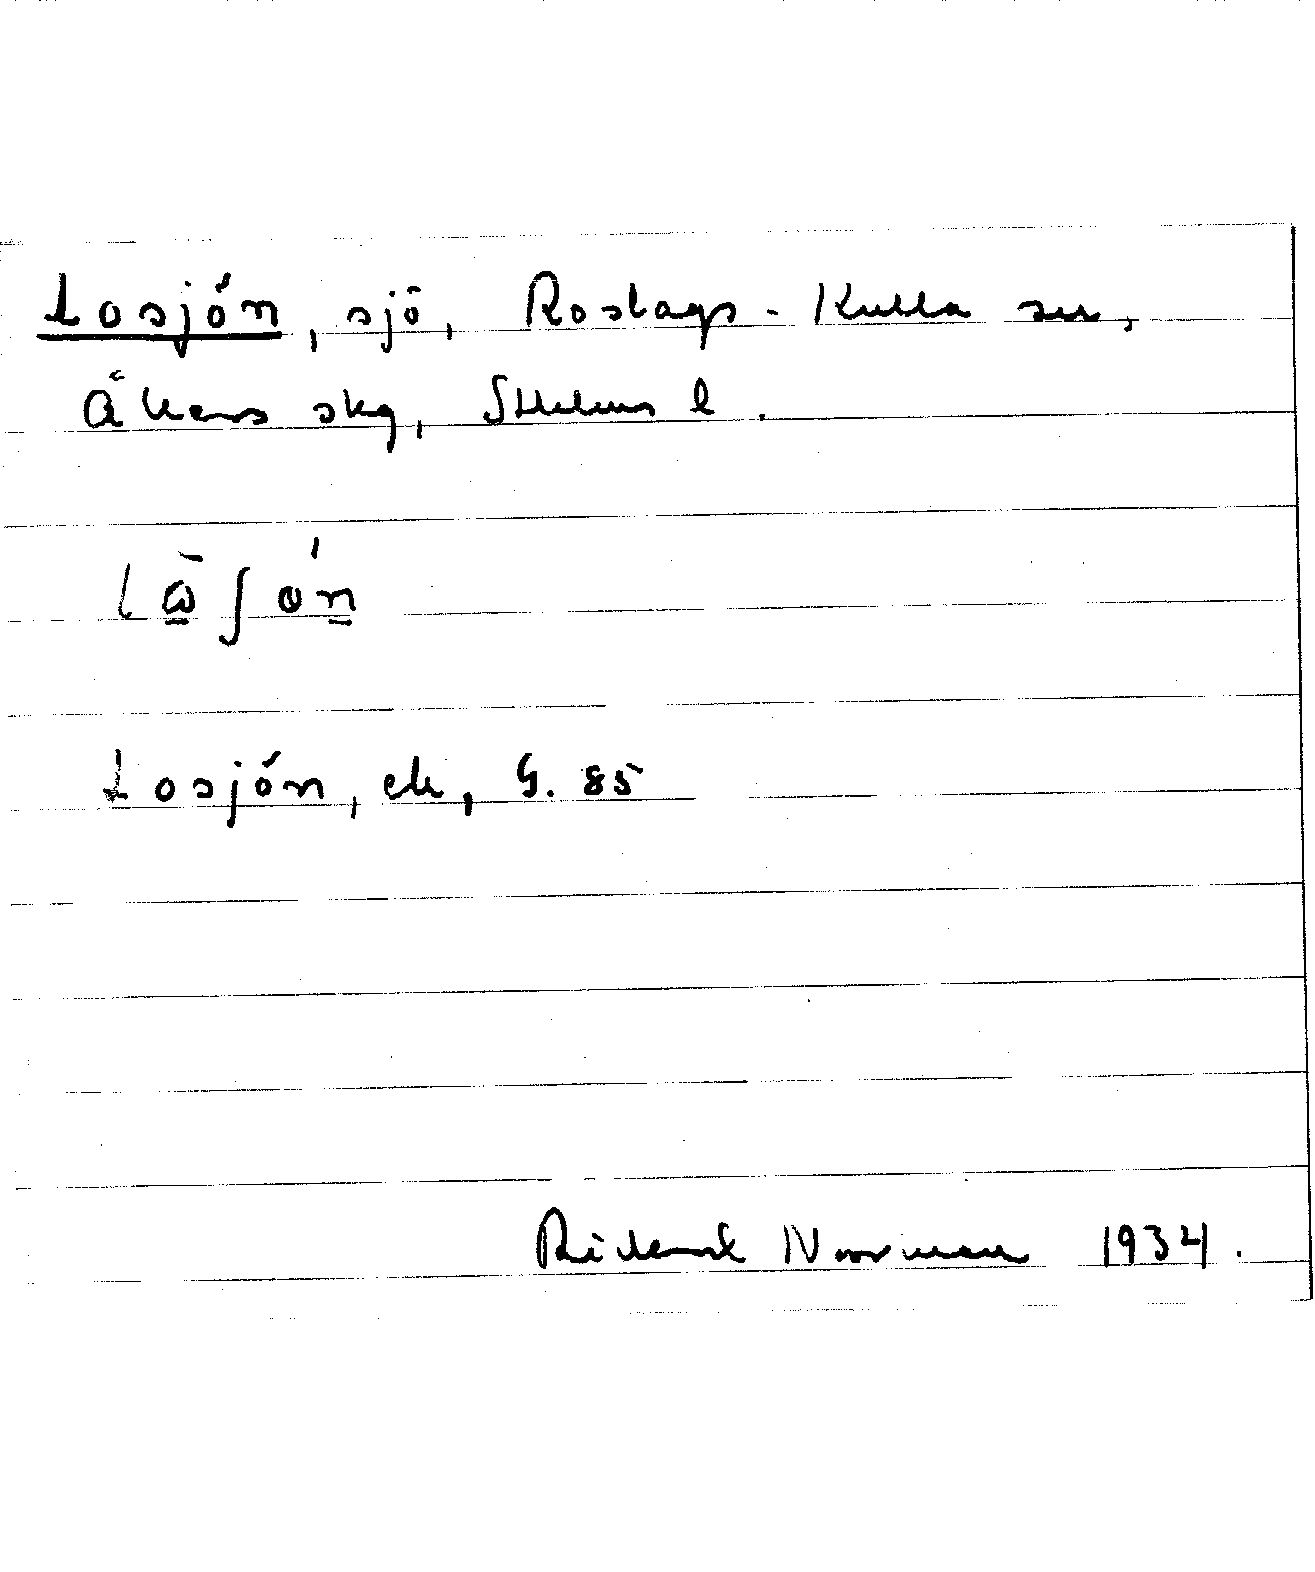 Losjön, sjö, Roslags-Kulla sn,
Åkers skg, Sthlms l.
lω̄ʃøn
Losjön, ek, G. 85
Rickard Noorman 1934.